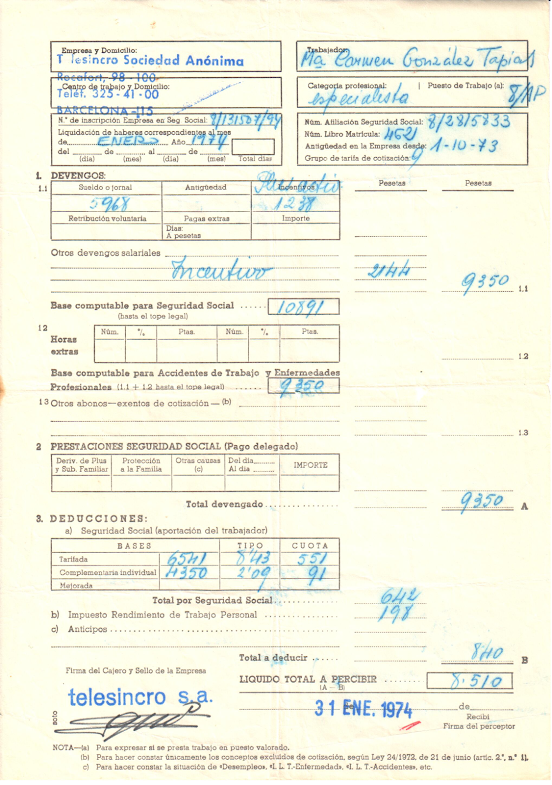 Empresa y Domicilio:
Telesincro Sociedad Anónima
Rocafort, 98 - 100
Centro de trabajo y Domicilio:
Teléf. 325-41-00
BARCELONA-15
N.º de inscripción Empresa en Seg. Social:
Liquidación de haberes correspondientes al mes
de ENERO Año 1974
del de al de Total días
(día) (mes) (día) (mes)
Trabajador:
Mª Carmen González Tapias
Categoría profesional: Puesto de Trabajo (a):
especialista 8/AP
Núm. Afiliación Seguridad Social: 8/2815833
Núm. Libro Matrícula: 4521
Antigüedad en la Empresa desde: 1-10-73
Grupo de tarifa de cotización: 9
1. DEVENGOS: Pesetas Pesetas
1.1 Sueldo o jornal Antigüedad Incentivos
5968 1238
Retribución voluntaria Pagas extras Importe
Días:
A pesetas
Otros devengos salariales
Incentivo 2144 9350 1.1
Base computable para Seguridad Social 10891
(hasta el tope legal)
1 2 Horas extras Núm. % Ptas. Núm. % Ptas.
1.2
Base computable para Accidentes de Trabajo y Enfermedades
Profesionales (1.1 + 1.2 hasta el tope legal) 9350
1 3 Otros abonos—exentos de cotización — (b)
1.3
2 PRESTACIONES SEGURIDAD SOCIAL (Pago delegado)
Deriv. de Plus y Sub. Familiar Protección a la Familia Otras causas (c) Del día Al día IMPORTE
Total devengado 9350 A
3. DEDUCCIONES:
a) Seguridad Social (aportación del trabajador)
BASES TIPO CUOTA
Tarifada 6541 8'43 551
Complementaria individual 4350 2'09 91
Mejorada
Total por Seguridad Social 642
b) Impuesto Rendimiento de Trabajo Personal 198
c) Anticipos
Total a deducir 840 B
Firma del Cajero y Sello de la Empresa
LIQUIDO TOTAL A PERCIBIR 8.510
(A — B)
telesincro s.a.
31 ENE. 1974
de
Recibí
Firma del perceptor
NOTA—(a) Para expresar si se presta trabajo en puesto valorado.
(b) Para hacer constar únicamente los conceptos excluidos de cotización, según Ley 24/1972, de 21 de junio (artic. 2.º, n.º 1).
(c) Para hacer constar la situación de «Desempleo», «I. L. T.-Enfermedad», «I. L. T.-Accidentes», etc.